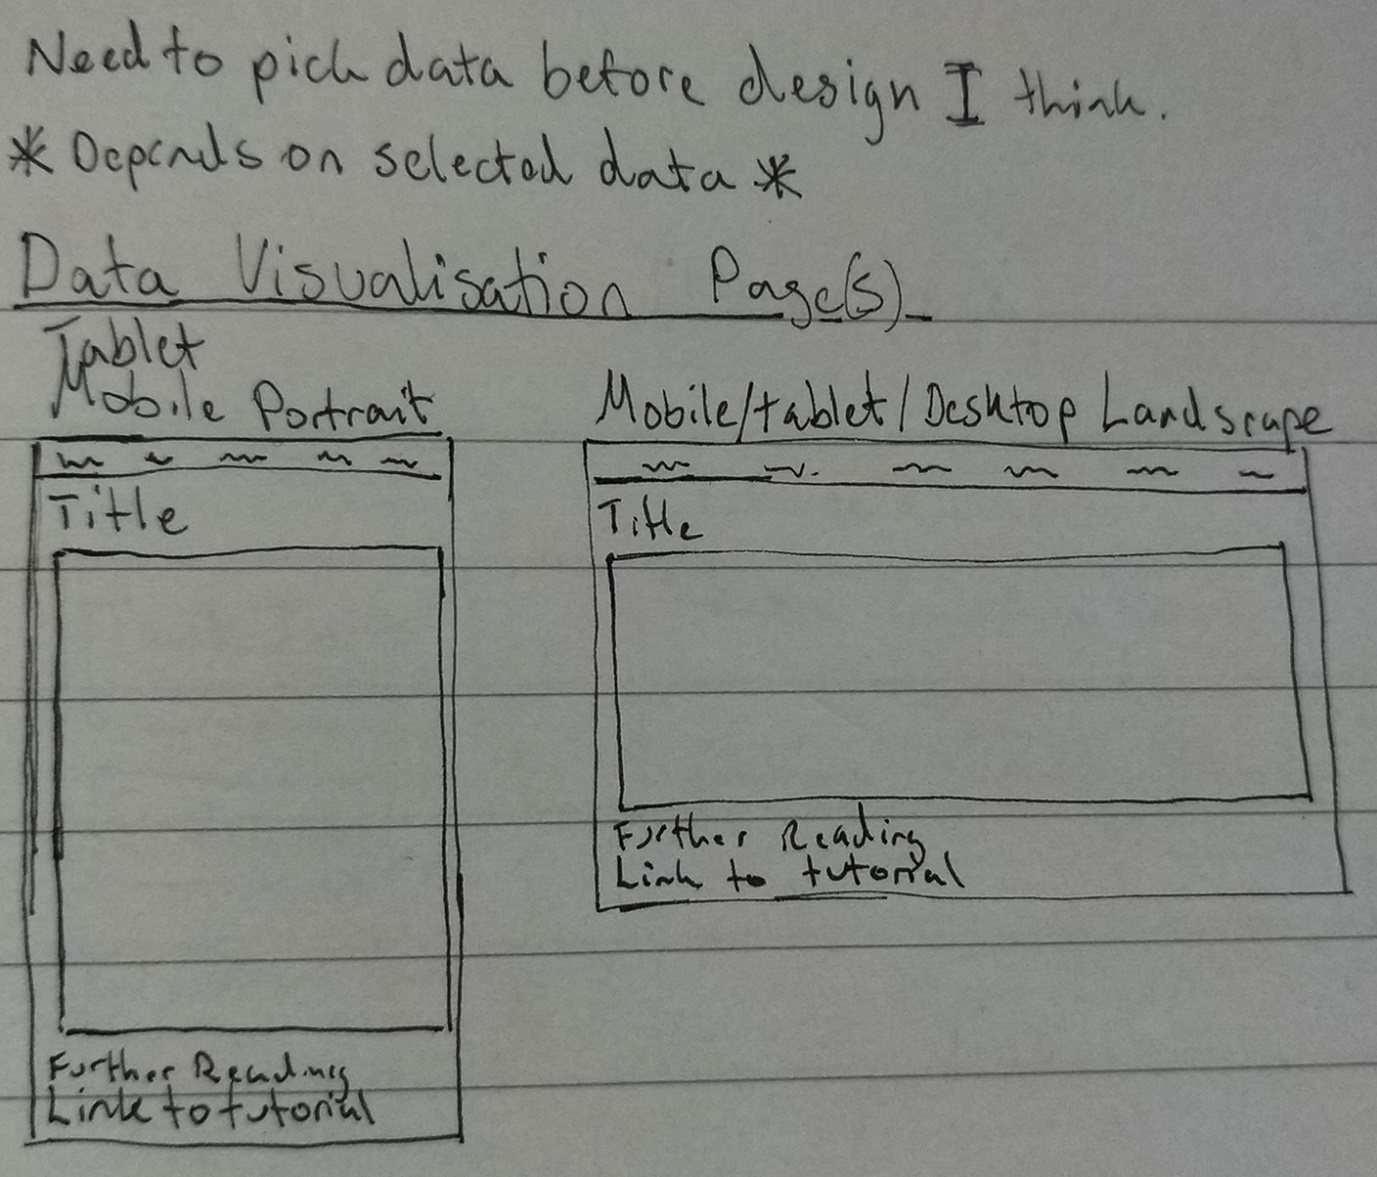 Need to pick data before design I think.
* Depends on selected data *
Data Visualisation Page(s)
Tablet
Mobile Portrait
Title
Further Reading
Link to tutorial
Mobile/tablet/Desktop Landscape
Title
Further Reading
Link to tutorial